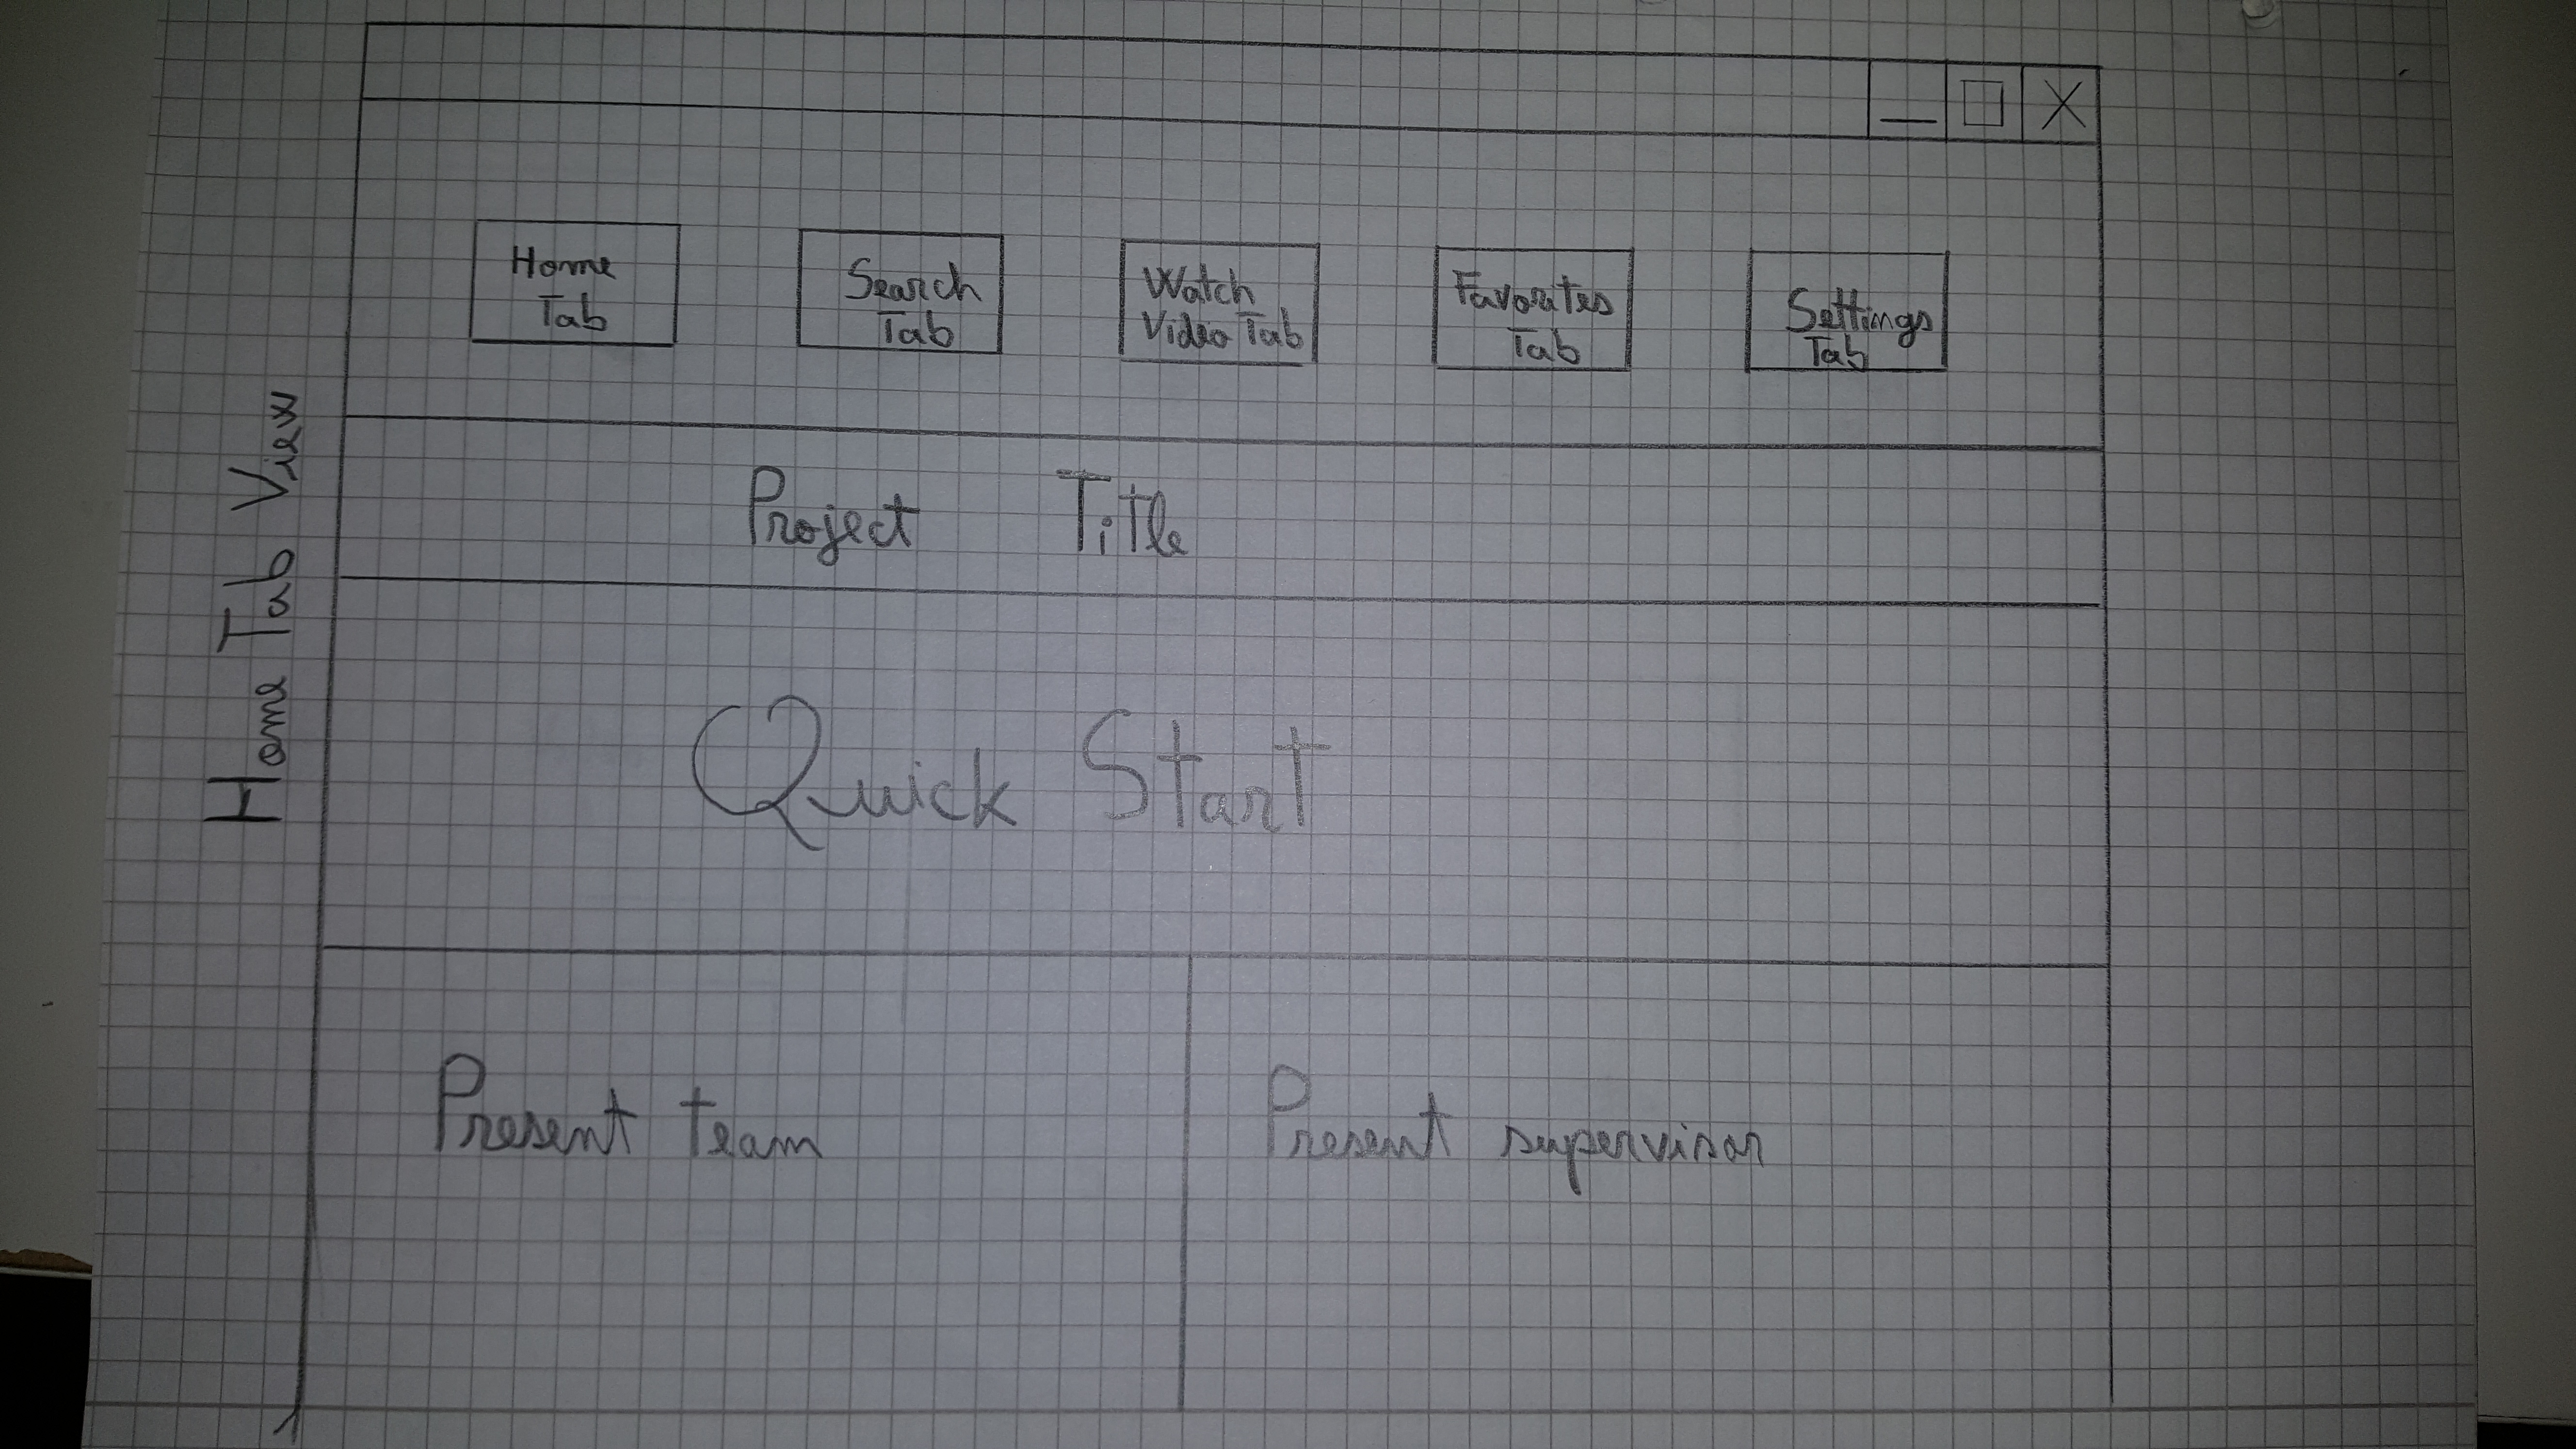 Home
Tab
Search
Tab
Watch
Video Tab
Favorites
Tab
Settings
Tab
Home Tab View
Project Title
Quick Start
Present team
Present supervisor